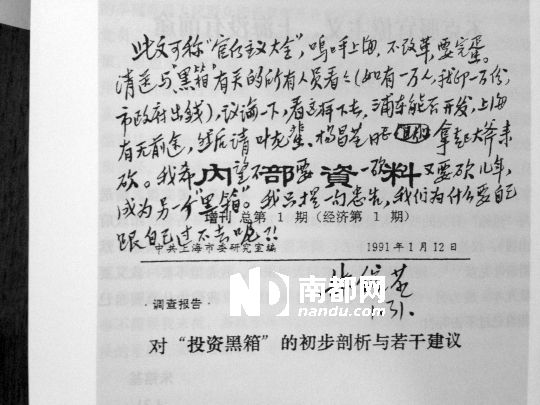 此文可称“官僚主义大全”,呜呼上海,不改革,要完蛋。
请送与“黑箱”有关的所有人员看看(如有一万人,我印一万份,
市政府出钱),议论一下,看这样下去,浦东能否开发,上海
有无前途,然后请叶龙蜚、杨昌基同志拿起大斧来
砍。我希望不要一砍又要砍几年,
内部資料
成为另一个“黑箱”。我只提一句忠告,我们为什么要自己
增刊 总第 1 期(经济第 1 期)
跟自己过不去呢?!
中共上海市委研究室编 1991年1月12日
朱镕基
1.31.
南都网
nandu.com
·调查报告·
对“投资黑箱”的初步剖析与若干建议